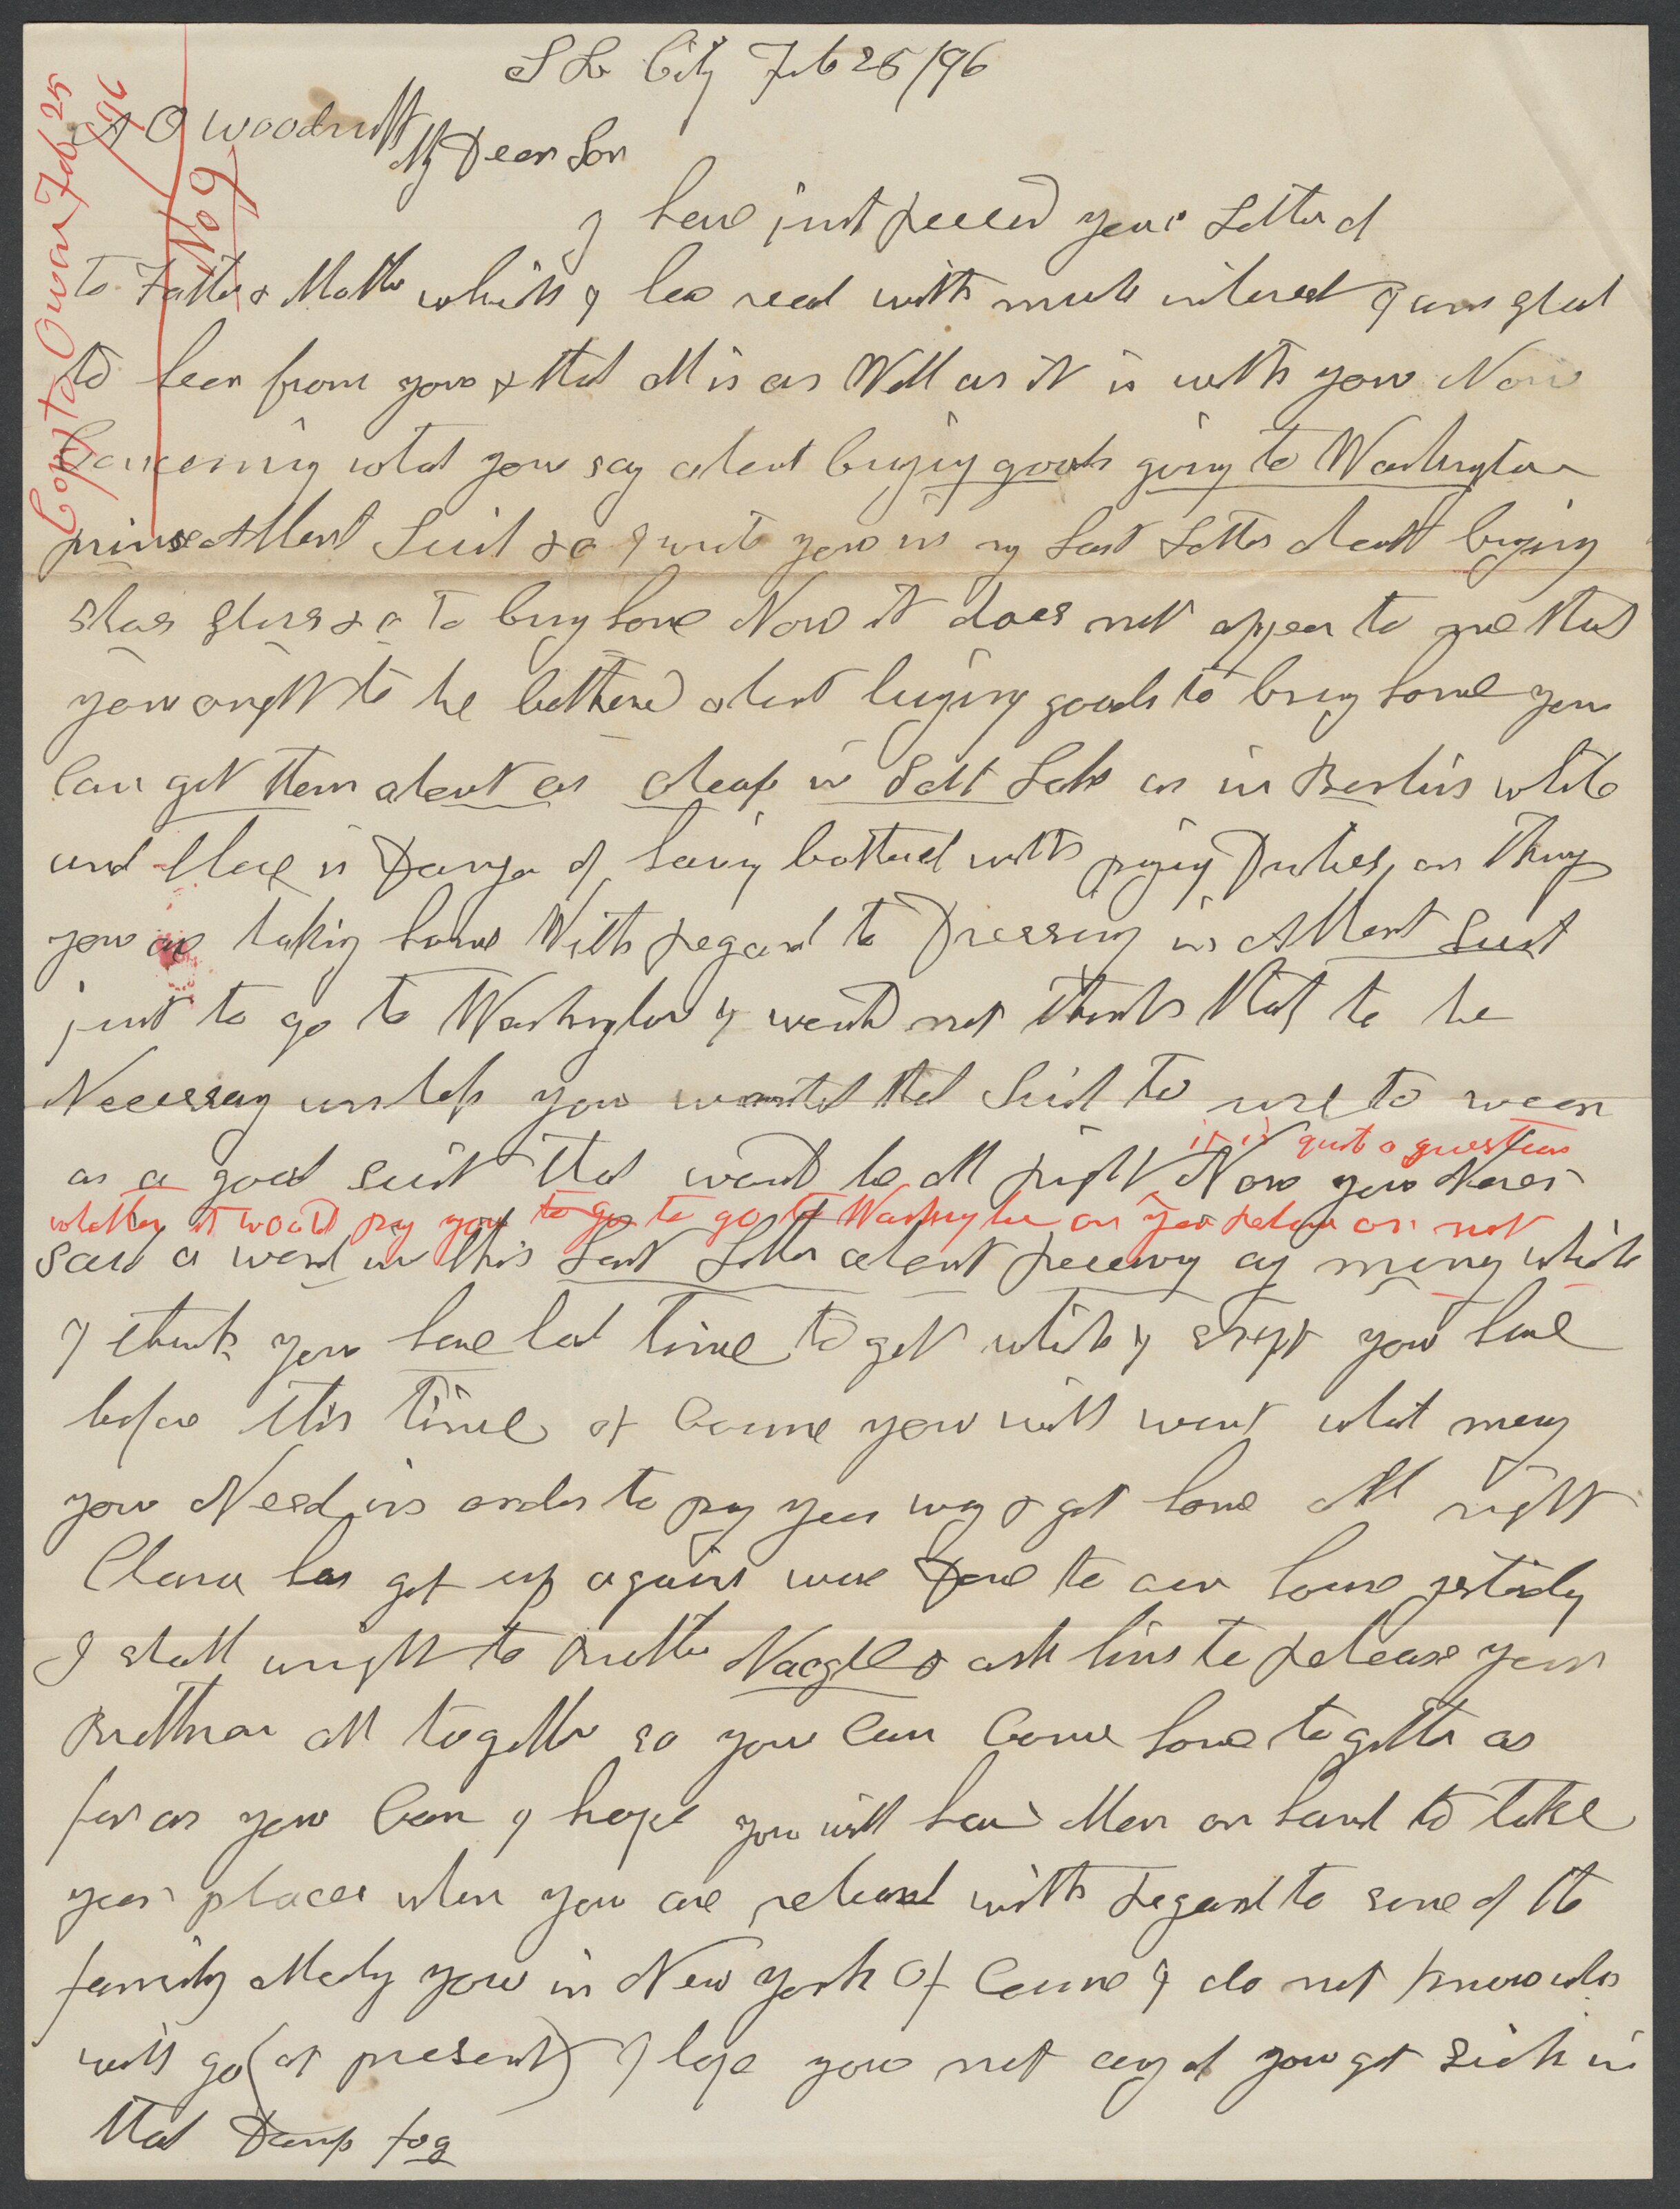 S L City Feb 25/96
A O Woodruff
My Dear Son
I have just Receed your Letter of
to Father & Mother which I have read with much interest I am glad
to hear from you & that all is as Well as it is with you Now
Concerning what you say about buying goods going to Washington
prince Albert Suit &c I wrote you in my Last Letter about buying
&c To bring home Now it does not appear to me that
you ought to be bothered about buying goods to bring home you
Can get them about as cheap in Salt Lake as in Berlin while
and there is Danger of having bothered with paying Duties, on Things
you are taking home With Regard to Dressing in Albert Suit
just to go to Washington I would not think that to be
Necessary unless you wanted that Suit to use to wear
it is quite a question
as a good suit that would be all Right Now you Never
whether it would pay you to go to go to Washington on your Return or not
said a word in this Last Letter about Receeving any money which
I think you have had time to get which I except you have
before this time of Course you will want what money
you Need in order to pay your way & get home All right
Clara has got up again was Down to our house yestidy
I shall wright to Brother Naegle & ask him to Release you
Brethren all together so you Can Come home together as
far as you Can I hope you will have Men on hand to take
your places when you are released with Regard to some of the
family Meeting you in New York Of Course I do not know who
will go (at present) I hope you not any of you get sick in
that Damp fog
Copy to Owen Feb 25
/96
No 9